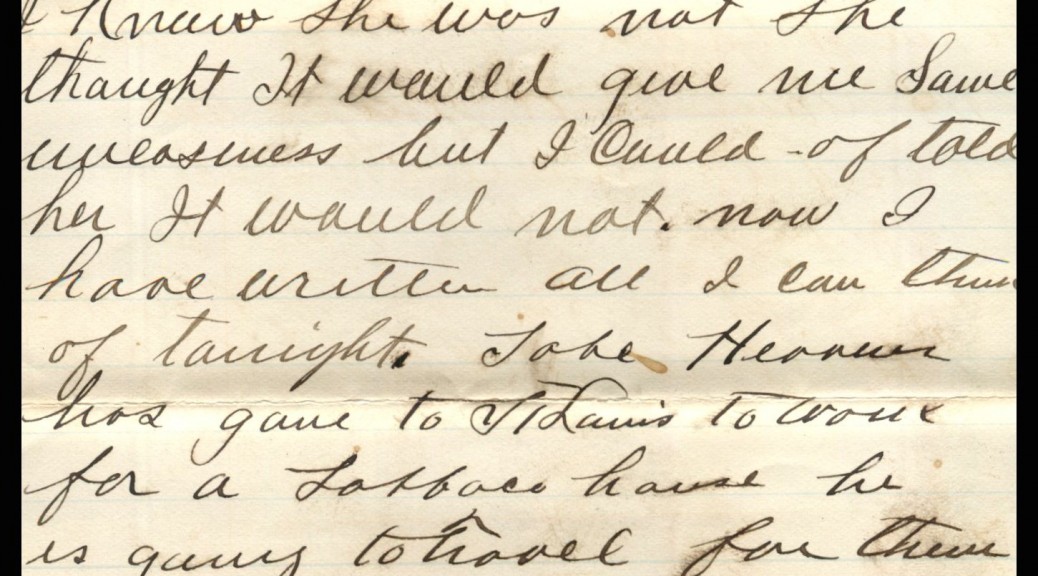 I Know she was not She
thought It would give me Some
uneasiness but I Could of told
her It would not. now I
have written all I can thin
of tonight. Tobe
has gone to St Louis to work
for a Tobbaco house he
is going to travel for them